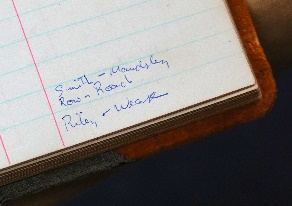 Smith - Maudsley
Row - Road
Riley - Weak